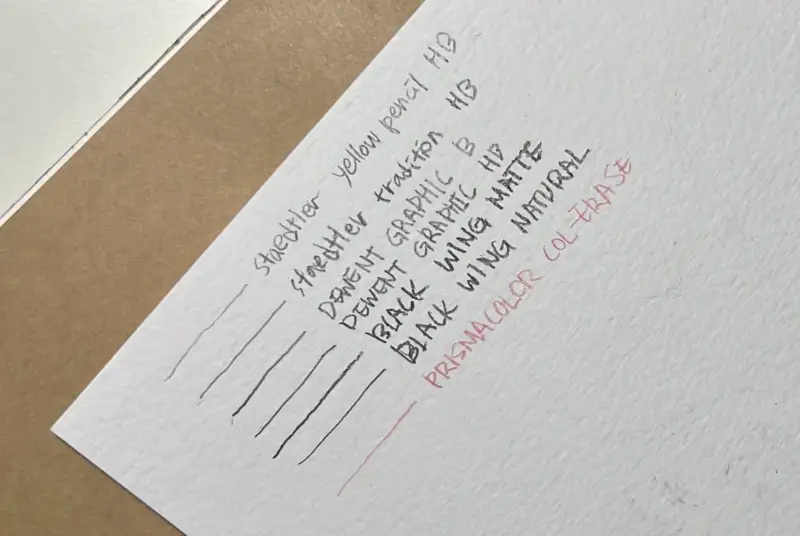 staedtler yellow pencil HB
staedtler tradition HB
DEWENT GRAPHIC B
DEWENT GRAPHIC HB
BLACK WING MATTE
BLACK WING NATURAL
PRISMACOLOR COL-ERASE